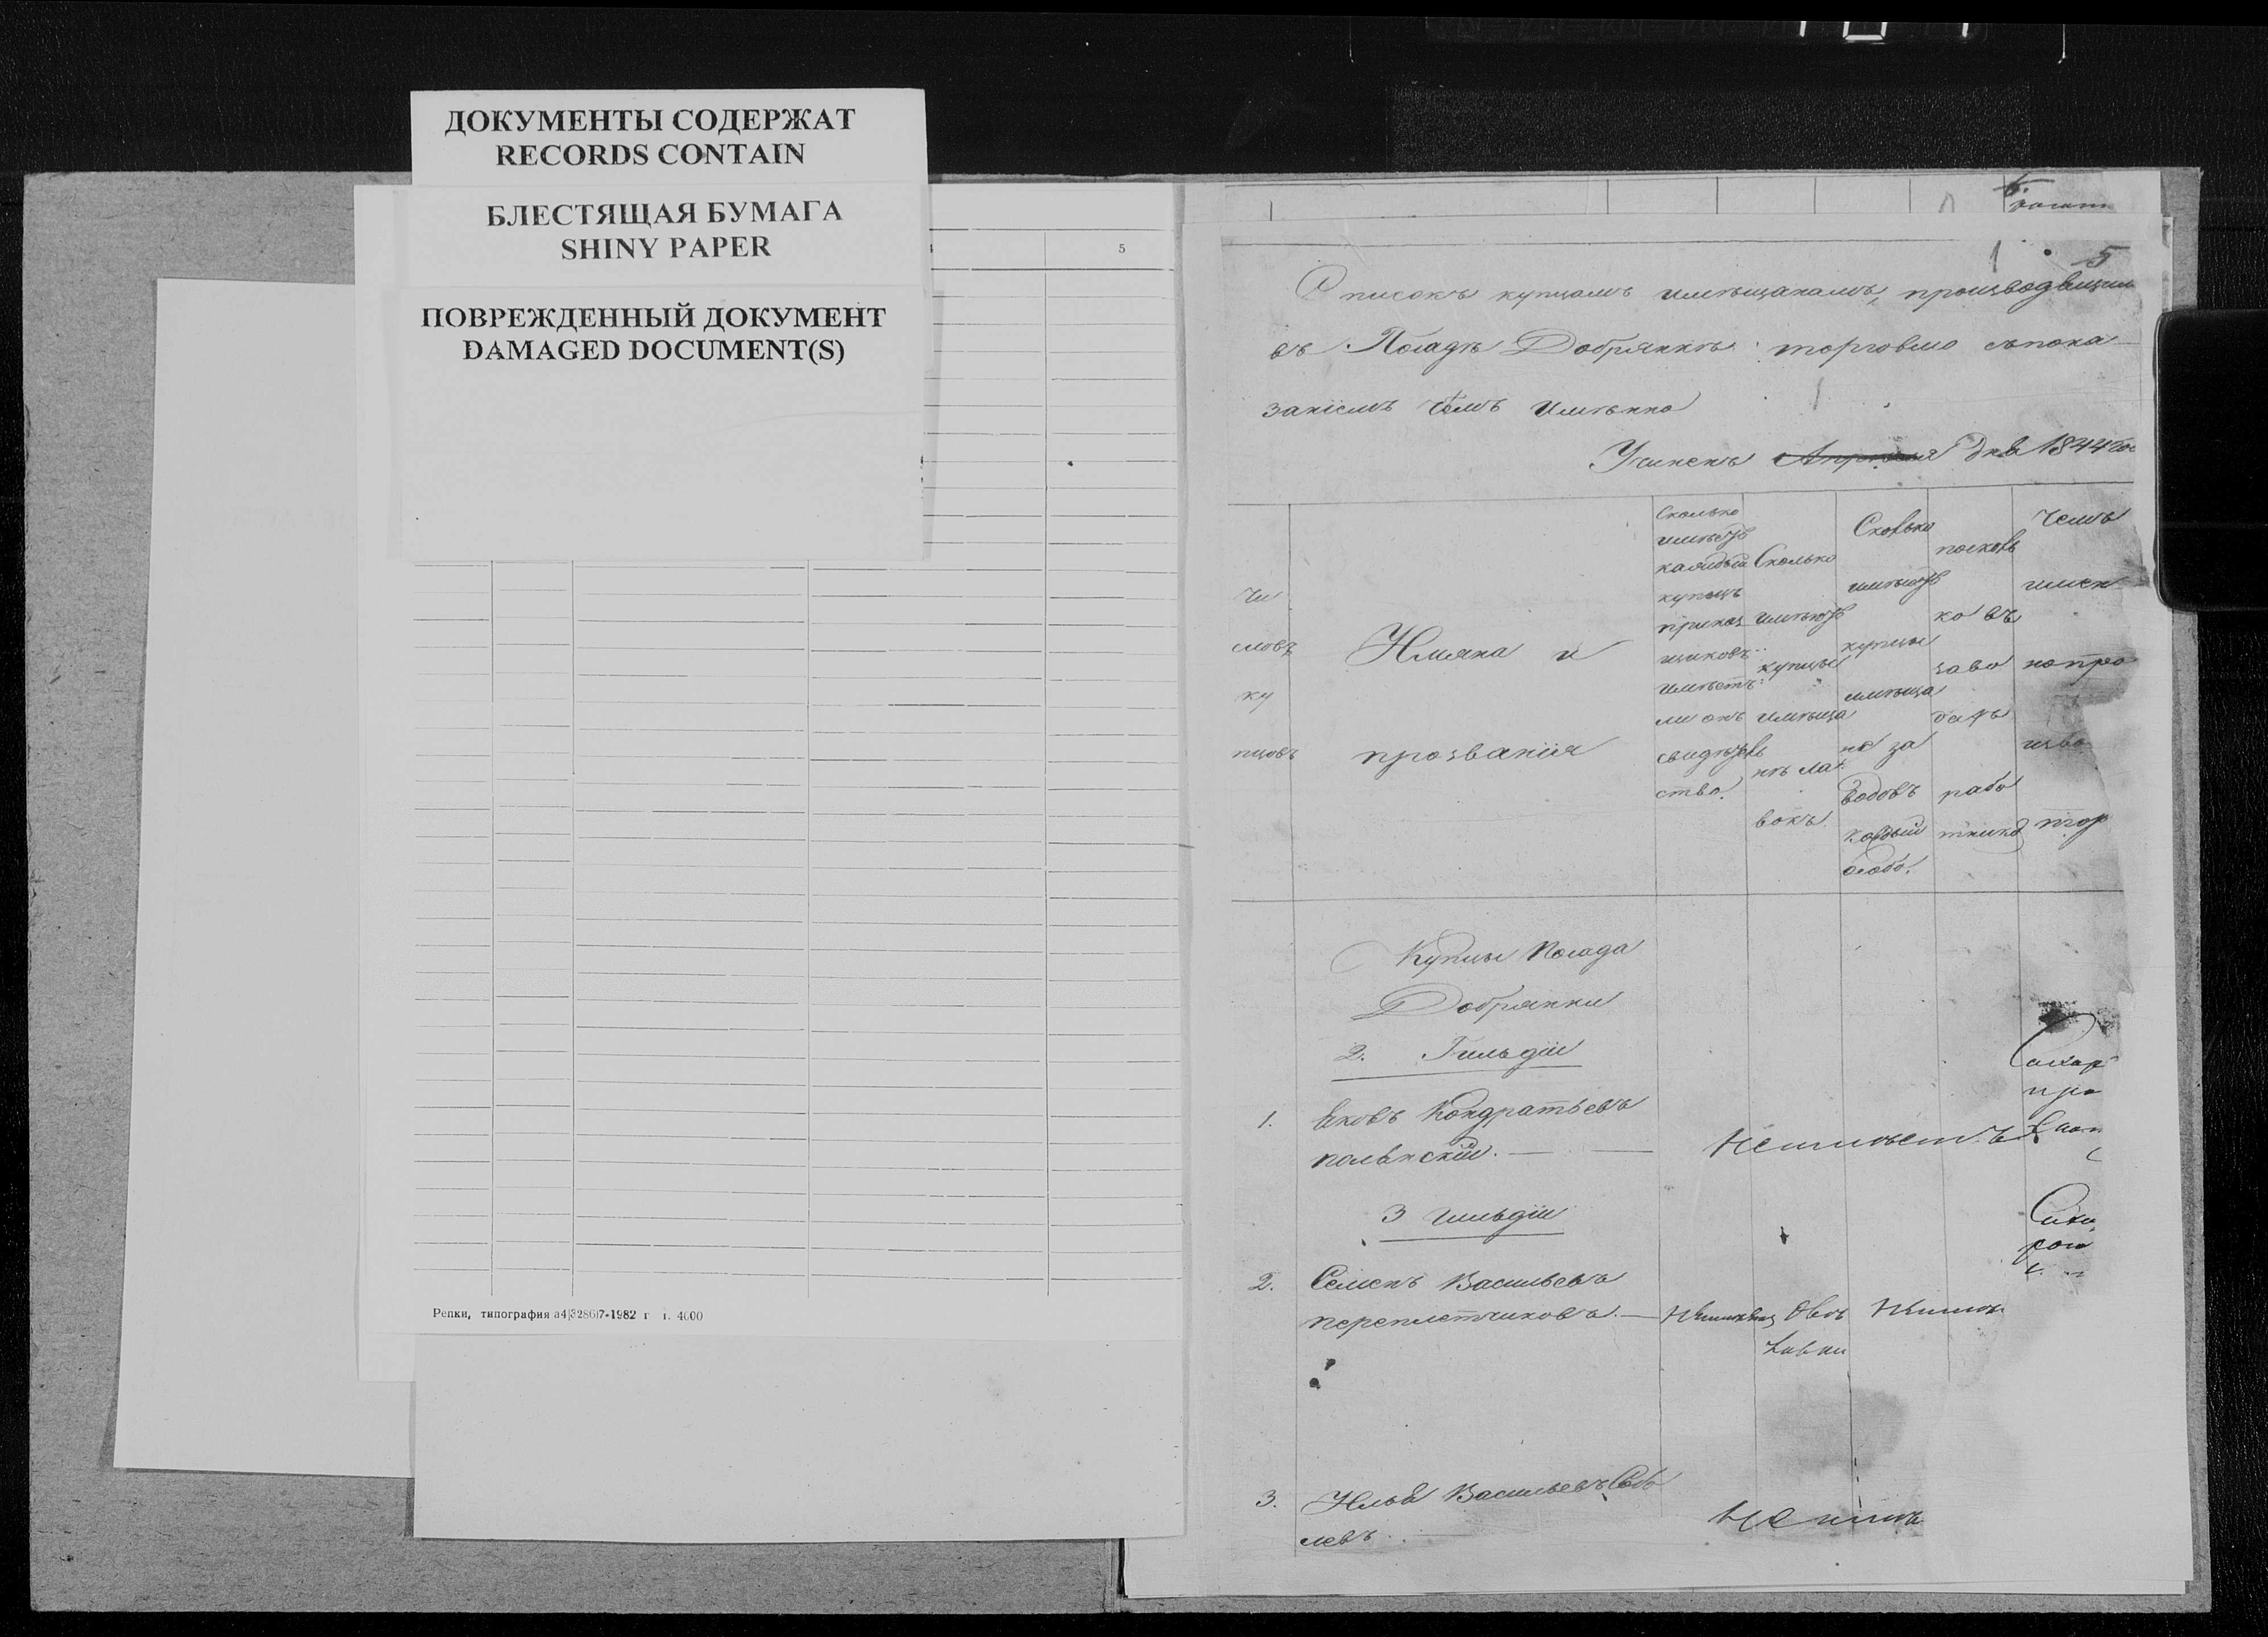 ДОКУМЕНТЫ СОДЕРЖАТ
RECORDS CONTAIN
БЛЕСТЯЩАЯ БУМАГА
SHINY PAPER
ПОВРЕЖДЕННЫЙ ДОКУМЕНТ
DAMAGED DOCUMENT(S)
5
Репки, типография з4|32867-1982 г т. 4000
5
Списокъ купцамъ имѣщанамъ, производящим
въ Посадѣ Добрянкѣ торговлю съпока
заніемъ чѣмъ имѣнно
Учиненъ Апреля дня 1844 го
Чи
словъ
ку
пцовъ
Имяна и
прозванія
Сколько
имѣетъ
каждый
купецъ
прикащ
щиковъ
имѣетъ
ли онъ
свидѣтель
ство.
Сколько
имѣютъ
купцы
имѣща
нѣ ла
вокъ.
Сколько
имѣютъ
купцы
имѣща
не за
водовъ
каждый
особо.
посколь
ко въ
заво
дахъ
рабо
тнико
Чемъ
имен
но про
изво
тор
Купцы Посада
Добрянки
2. Гильдіи
1. Яковъ Кондратьевъ
польнскій.
Неимѣетъ
3 гильдіи
2. Семенъ Васильевъ
переплетчиковъ.
лавки
3. Илья Васильевъ Собо
левъ
Неимѣ